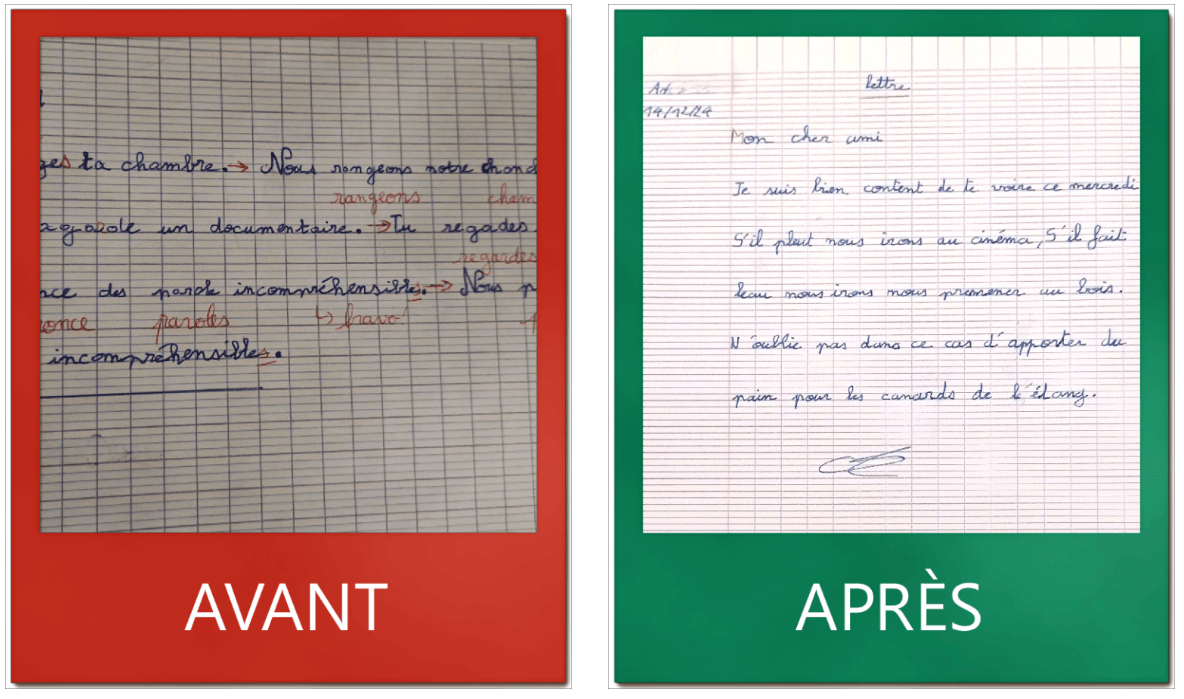 ges ta chambre. → Nous rongeons notre chond
rangeons cham
regarde un documentaire. → Tu regades
regardes
nce des parole incompréhensibles. → Nous p
once paroles ↳ bravo!
incompréhensibles.
AVANT
lettre
14/12/24
Mon cher ami
Je suis bien content de te voire ce mercredi
S'il pleut nous irons au cinéma, S'il fait
beau nous irons nous promener au bois.
N'oublie pas dans ce cas d'apporter du
pain pour les canards de l'étang.
APRÈS